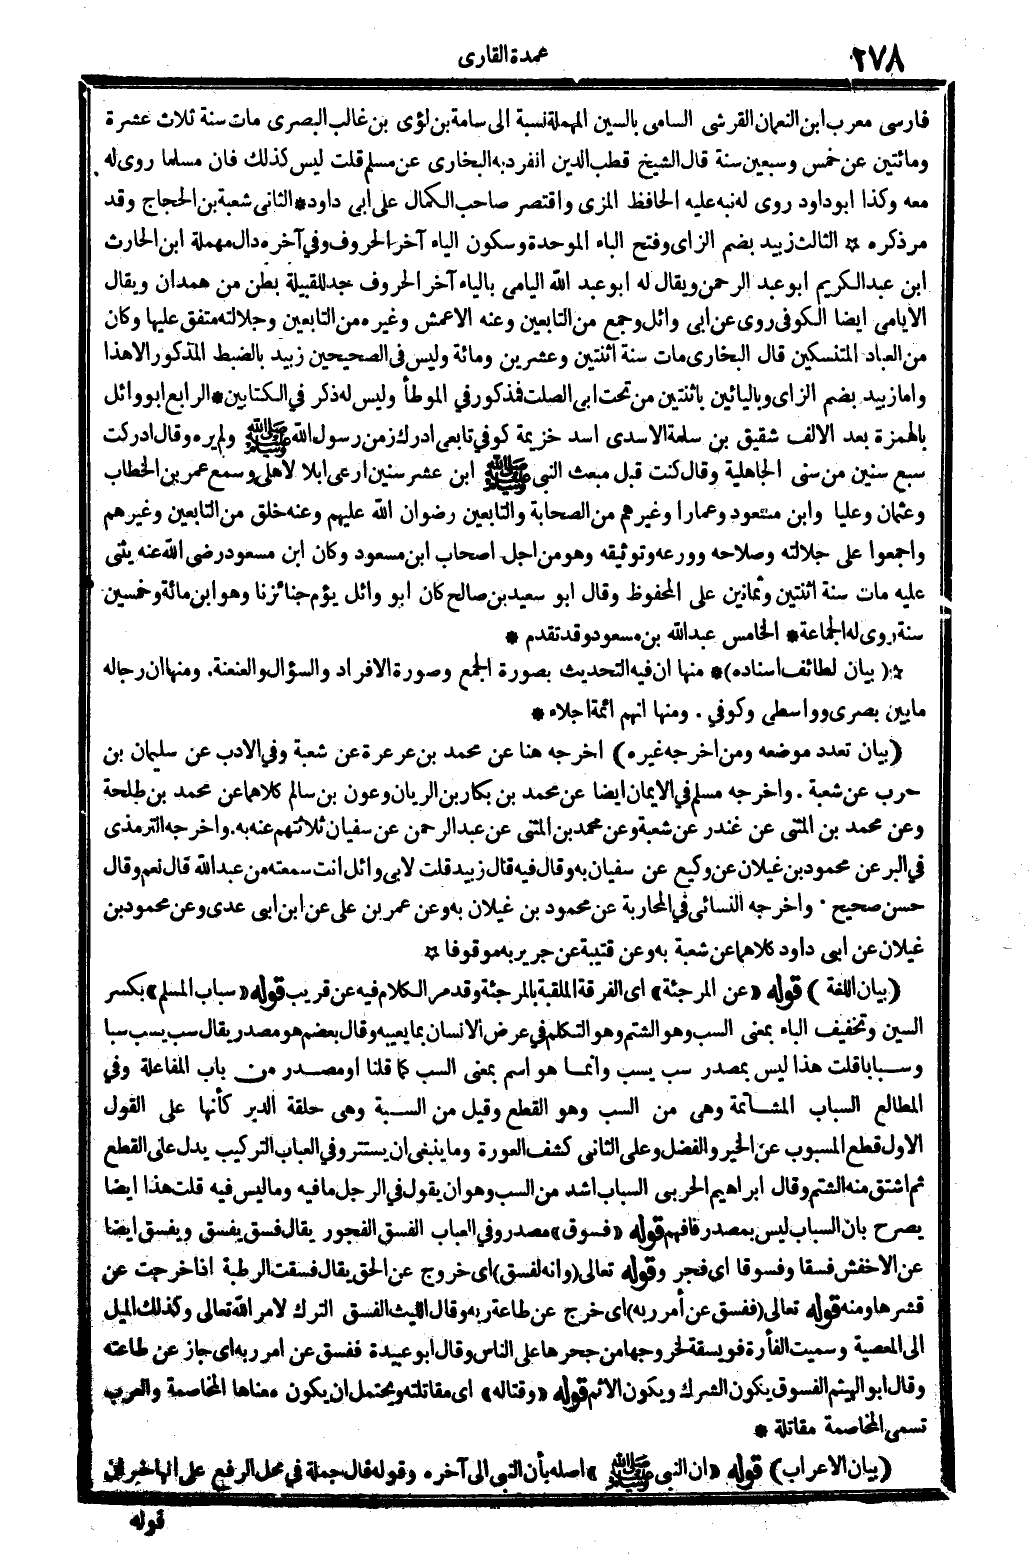 ٢٧٨
عمدة القارى
فارسى معرب ابن النعمان القرشى السامى بالسين المهملة نسبة الى سامة بن لؤى بن غالب البصرى مات سنة ثلاث عشرة
ومائتين عن خمس وسبعين سنة قال الشيخ قطب الدين انفرد به البخارى عن مسلم قلت ليس كذلك فان مسلما روى له
معه وكذا ابو داود روى له نبه عليه الحافظ المزى واقتصر صاحب الكمال على ابى داود * الثانى شعبة بن الحجاج وقد
مر ذكره * الثالث زبيد بضم الزاى وفتح الباء الموحدة وسكون الياء آخر الحروف وفي آخره دال مهملة ابن الحارث
ابن عبد الكريم ابو عبد الرحمن ويقال له ابو عبد الله اليامى بالياء آخر الحروف جد للقبيلة بطن من همدان ويقال
الايامى ايضا الكوفى روى عن ابى وائل وجمع من التابعين وعنه الاعمش وغيره من التابعين وجلالته متفق عليها وكان
من العباد المتنسكين قال البخارى مات سنة اثنتين وعشرين ومائة وليس فى الصحيحين زبيد بالضبط المذكور الا هذا
واما زييد بضم الزاى وباليائين باثنتين من تحت ابى الصلت فمذكور في الموطأ وليس له ذكر في الكتابين * الرابع ابو وائل
بالهمزة بعد الالف شقيق بن سلمة الاسدى اسد خزيمة كوفي تابعى ادرك زمن رسول الله ﷺ ولم يره وقال ادركت
سبع سنين من سنى الجاهلية وقال كنت قبل مبعث النبى ﷺ ابن عشر سنين ارعى ابلا لاهلى وسمع عمر بن الخطاب
وعثمان وعليا وابن مسعود وعمارا وغيرهم من الصحابة والتابعين رضوان الله عليهم وعنه خلق من التابعين وغيرهم
واجمعوا على جلالته وصلاحه وورعه وتوثيقه وهو من اجل اصحاب ابن مسعود وكان ابن مسعود رضى الله عنه يثنى
عليه مات سنة اثنتين وثمانين على المحفوظ وقال ابو سعيد بن صالح كان ابو وائل يؤم جنائزنا وهو ابن مائة وخمسين
سنة روى له الجماعة * الخامس عبد الله بن مسعود وقد تقدم *
*( بيان لطائف اسناده )* منها ان فيه التحديث بصورة الجمع وصورة الافراد والسؤال والعنعنة. ومنها ان رجاله
مابين بصرى وواسطى وكوفي . ومنها انهم ائمة اجلاء *
(بيان تعدد موضعه ومن اخرجه غيره) اخرجه هنا عن محمد بن عرعرة عن شعبة وفي الادب عن سليمان بن
حرب عن شعبة . واخرجه مسلم في الايمان ايضا عن محمد بن بكار بن الريان وعون بن سالم كلاهما عن محمد بن طلحة
وعن محمد بن المثنى عن غندر عن شعبة وعن محمد بن المثنى عن عبد الرحمن عن سفيان ثلاثتهم عنه به. واخرجه الترمذى
في البر عن محمود بن غيلان عن وكيع عن سفيان به وقال فيه قال زبيد قلت لابى وائل انت سمعته من عبد الله قال نعم وقال
حسن صحيح . واخرجه النسائى في المحاربة عن محمود بن غيلان به وعن عمر بن على عن ابن ابى عدى وعن محمود بن
غيلان عن ابى داود كلاهما عن شعبة به وعن قتيبة عن جرير به موقوفا *
(بيان اللغة ) قوله «عن المرجئة» اى الفرقة الملقبة بالمرجئة وقد مر الكلام فيه عن قريب قوله «سباب المسلم» بكسر
السين وتخفيف الباء بمعنى السب وهو الشتم وهو التكلم في عرض الانسان بما يعيبه وقال بعضهم هو مصدر يقال سب يسب سبا
وسبابا قلت هذا ليس بمصدر سب يسب وانما هو اسم بمعنى السب كما قلنا او مصدر من باب المفاعلة وفي
المطالع السباب المشاتمة وهى من السب وهو القطع وقيل من السبة وهى حلقة الدبر كأنها على القول
الاول قطع المسبوب عن الخير والفضل وعلى الثانى كشف العورة وما ينبغى ان يستتر وفي العباب التركيب يدل على القطع
ثم اشتق منه الشتم وقال ابراهيم الحربى السباب اشد من السب وهو ان يقول في الرجل مافيه وما ليس فيه قلت هذا ايضا
يصرح بان السباب ليس بمصدر فافهم قوله «فسوق» مصدر وفي العباب الفسق الفجور يقال فسق يفسق ويفسق ايضا
عن الاخفش فسقا وفسوقا اى فجر وقوله تعالى (وانه لفسق) اى خروج عن الحق يقال فسقت الرطبة اذا خرجت عن
قشرها ومنه قوله تعالى (ففسق عن أمر ربه) اى خرج عن طاعة ربه وقال الليث الفسق الترك لامر الله تعالى وكذلك الميل
الى المعصية وسميت الفأرة فويسقة لخروجها من جحرها على الناس وقال ابو عبيدة ففسق عن امر ربه اى جاز عن طاعته
وقال ابو الهيثم الفسوق يكون الشرك ويكون الاثم قوله «وقتاله» اى مقاتلته ويحتمل ان يكون معناها المخاصمة والعرب
تسمى المخاصمة مقاتلة *
(بيان الاعراب) قوله «ان النبى ﷺ » اصله بأن النبى الى آخره وقوله قال جملة في محل الرفع على انها خبر ان
قوله